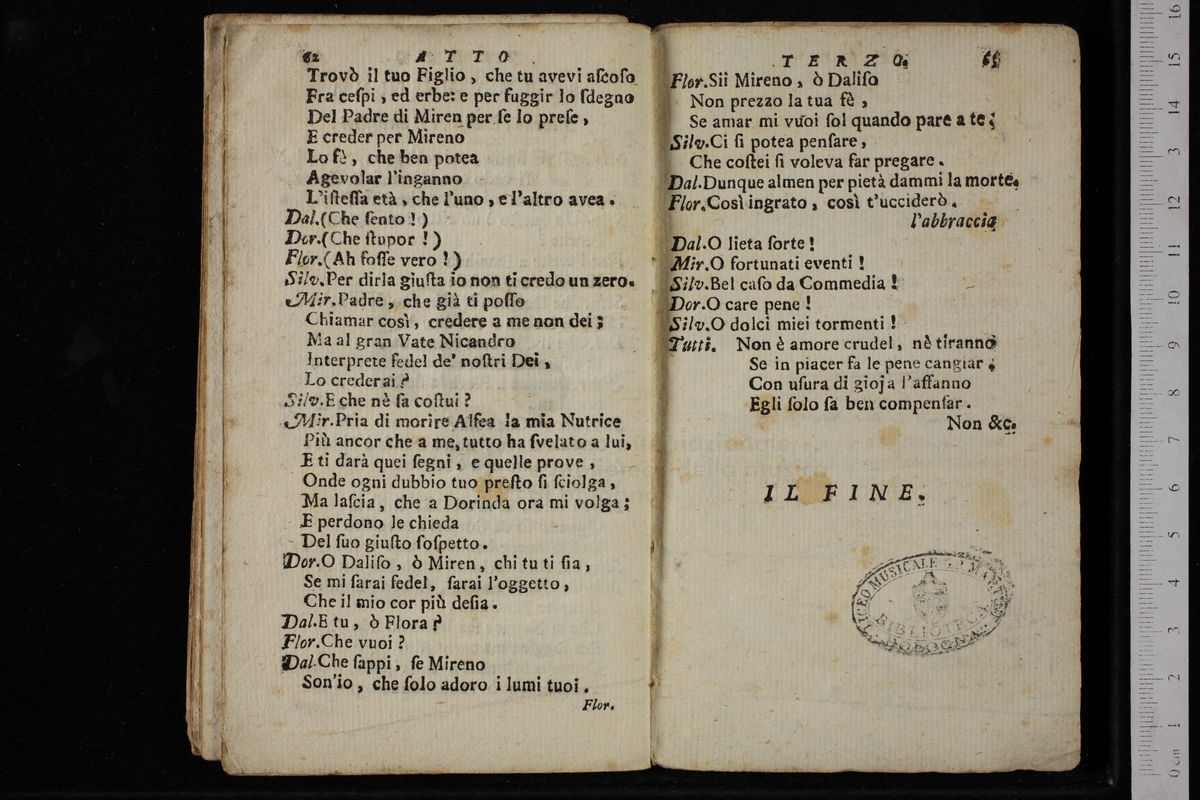 62 ATTO
Trovò il tuo Figlio, che tu avevi aſcoſo
Fra ceſpi, ed erbe: e per fuggir lo ſdegno
Del Padre di Miren per ſe lo preſe,
E creder per Mireno
Lo fè, che ben potea
Agevolar l'inganno
L'iſteſſa età, che l'uno, e l'altro avea.
Dal. (Che ſento!)
Dor. (Che ſtupor!)
Flor. (Ah foſſe vero!)
Silv. Per dirla giuſta io non ti credo un zero.
Mir. Padre, che già ti poſſo
Chiamar così, credere a me non dei;
Ma al gran Vate Nicandro
Interprete fedel de' noſtri Dei,
Lo crederai?
Silv. E che nè ſa coſtui?
Mir. Pria di morire Alfea la mia Nutrice
Più ancor che a me, tutto ha ſvelato a lui,
E ti darà quei ſegni, e quelle prove,
Onde ogni dubbio tuo preſto ſi ſciolga,
Ma laſcia, che a Dorinda ora mi volga;
E perdono le chieda
Del ſuo giuſto ſoſpetto.
Dor. O Daliſo, ò Miren, chi tu ti ſia,
Se mi ſarai fedel, ſarai l'oggetto,
Che il mio cor più deſia.
Dal. E tu, ò Flora?
Flor. Che vuoi?
Dal. Che ſappi, ſe Mireno
Son'io, che ſolo adoro i lumi tuoi.
Flor.
TERZO.
Flor. Sii Mireno, ò Daliſo
Non prezzo la tua fè,
Se amar mi vuoi ſol quando pare a te;
Silv. Ci ſi potea penſare,
Che coſtei ſi voleva far pregare.
Dal. Dunque almen per pietà dammi la morte.
Flor. Così ingrato, così t'ucciderò.
l'abbraccia
Dal. O lieta ſorte!
Mir. O fortunati eventi!
Silv. Bel caſo da Commedia!
Dor. O care pene!
Silv. O dolci miei tormenti!
Tutti. Non è amore crudel, nè tiranno
Se in piacer fa le pene cangiar;
Con uſura di gioja l'affanno
Egli ſolo ſa ben compenſar.
Non &c.
IL FINE.
LICEO MUSICALE
BIBLIOTECA
BOLOGNA
16
15
14
13
12
11
10
9
8
7
6
5
4
3
2
1
0 cm